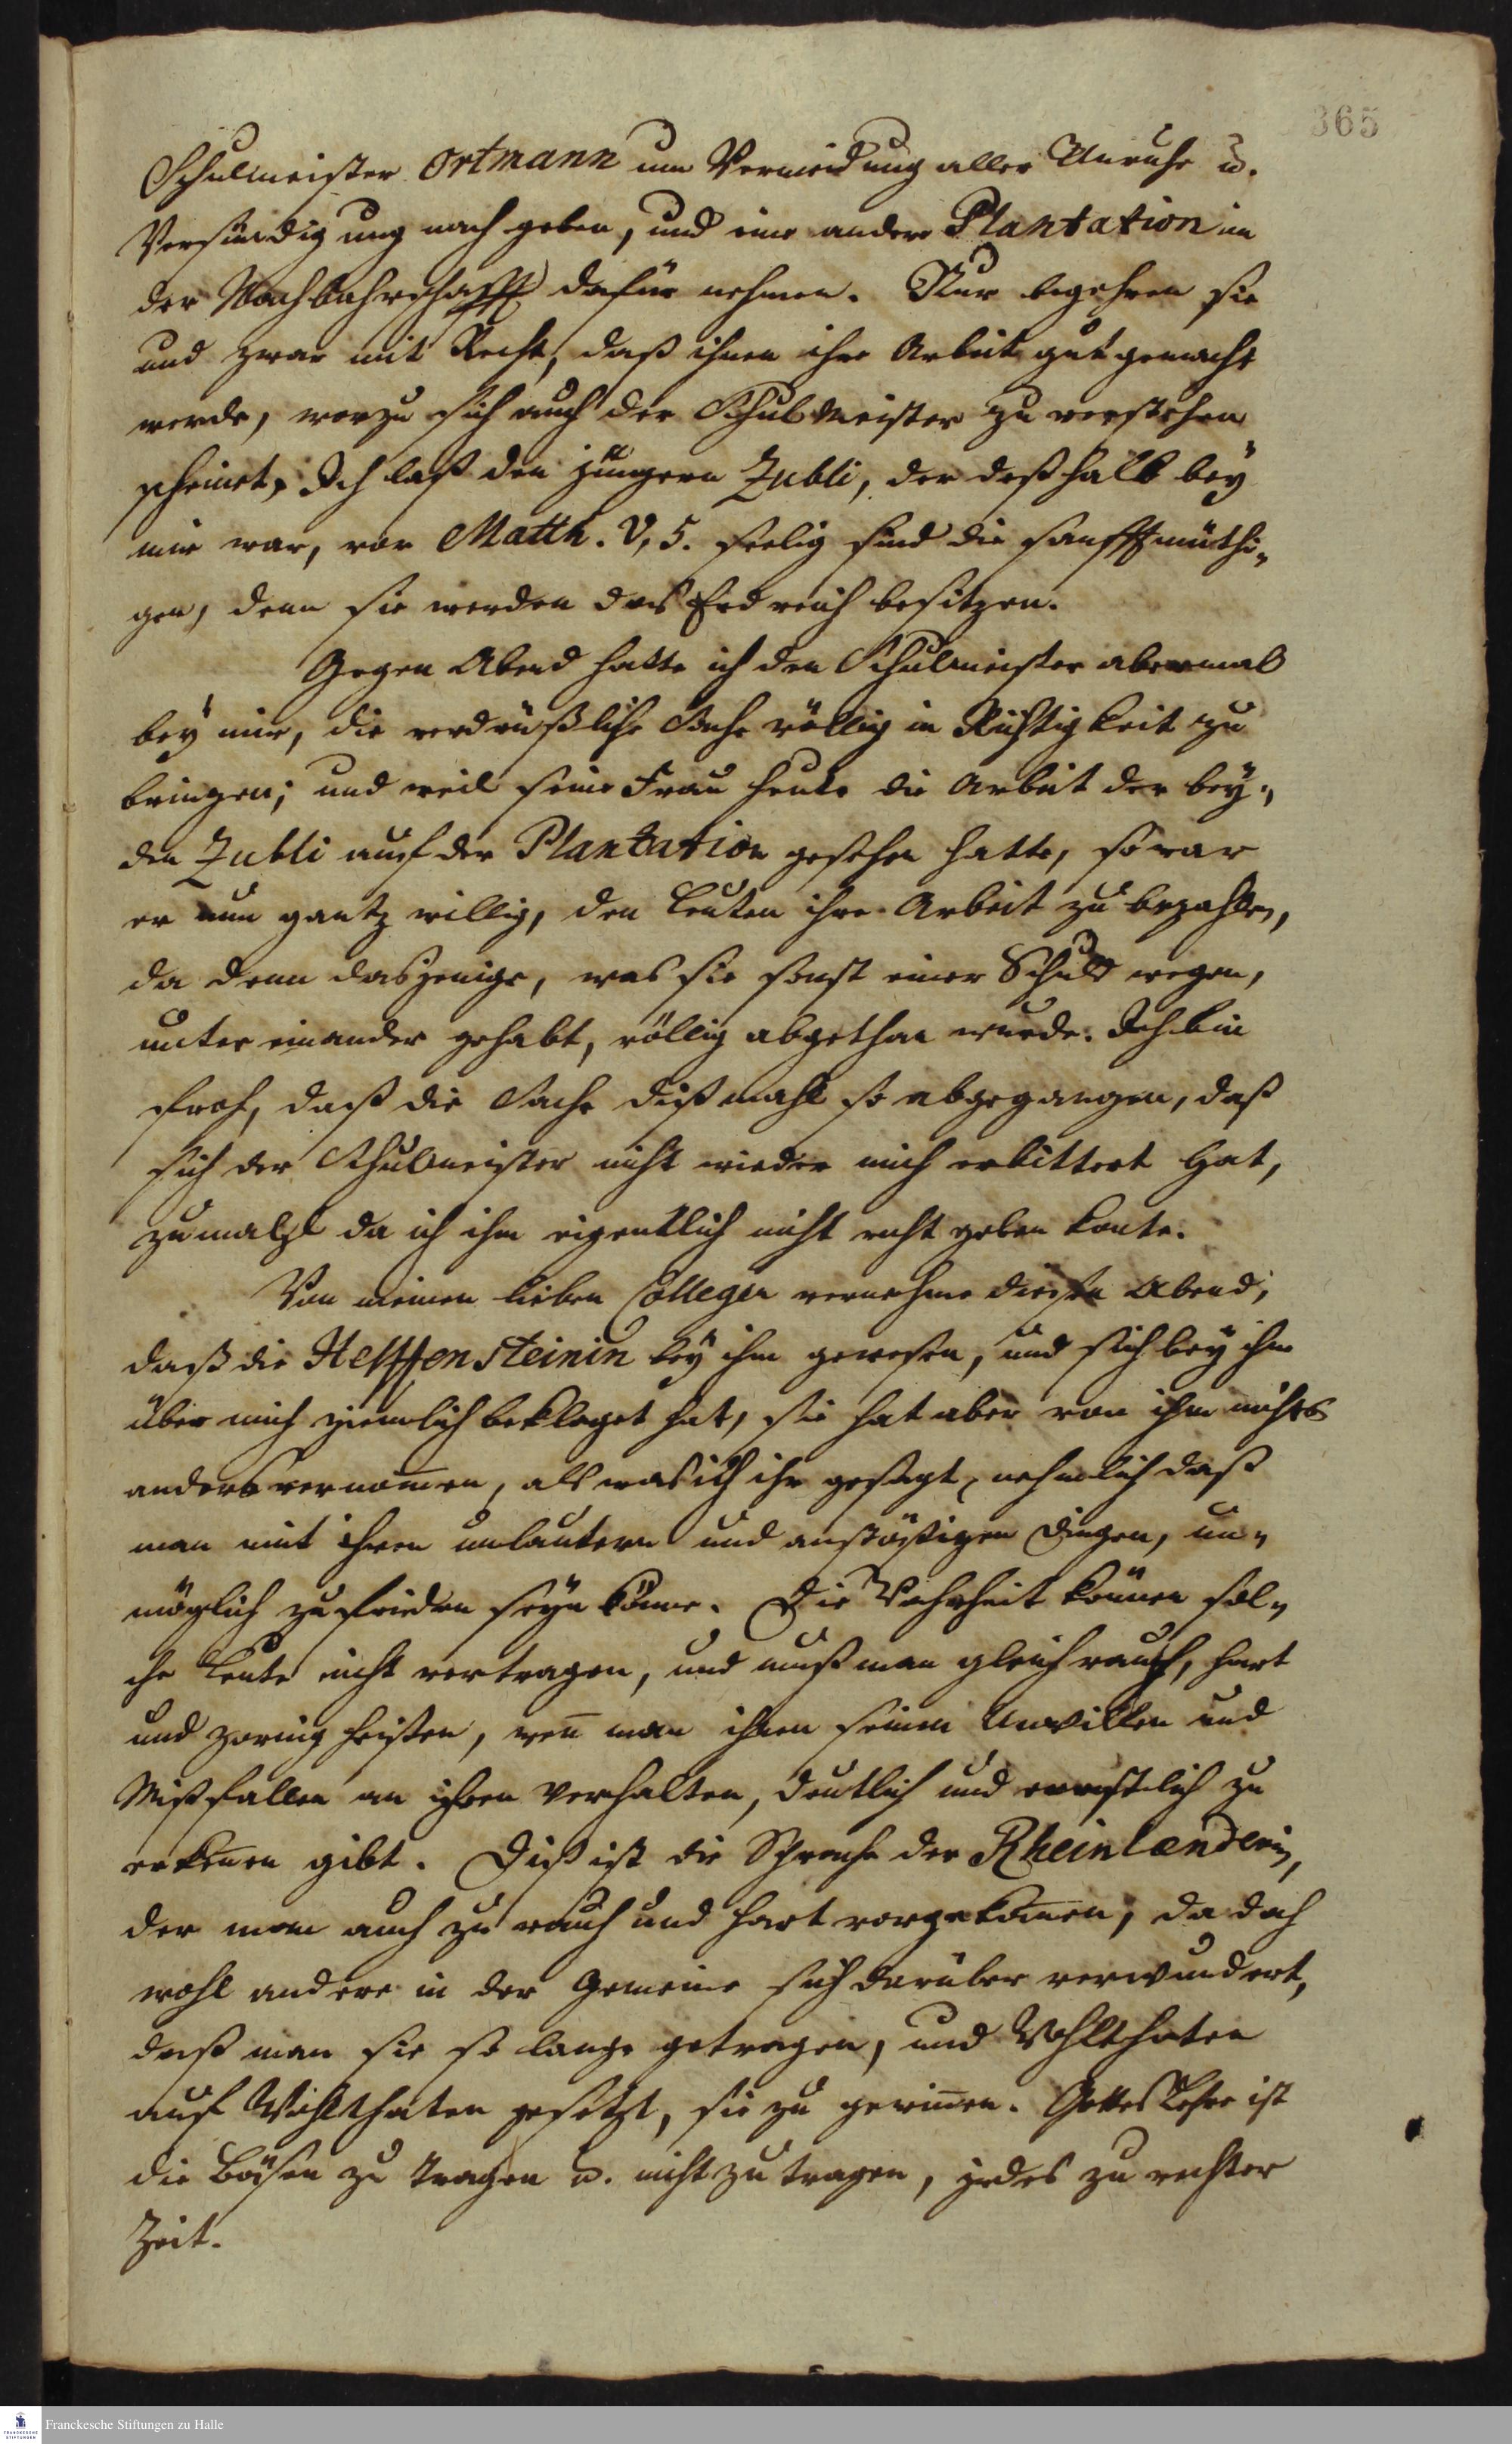 365
Schulmeister Ortmann um Vermeidung aller Unruhe u.
Versündigung nach geben, und eine andere Plantation in
der Nachbahrschafft dafür nehmen. Nur begehren sie
und zwar mit Recht, daß ihnen ihre Arbeit gut gemacht
werde, worzu sich auch der Schulmeister zu verstehen
scheinet. Ich laß den jüngern Zubli, der deßhalb bey
mir war, vor Matth. V, 5. seelig sind die sanfftmüthi„
gen, denn sie werden das Erdreich besitzen.
Gegen Abend hatte ich den Schulmeister abermal
bey mir, die verdrüßliche Sache völlig in Richtigkeit zu
bringen; und weil seine Frau heute die Arbeit der bey„
den Zubli auf der Plantation gesehen hatte, so war
er nun gantz willig, den Leuten ihre Arbeit zu bezahlen,
da denn dasjenige, was sie sonst einer Schuld wegen,
unter einander gehabt, völlig abgethan wurde. Ich bin
froh, daß die Sache dißmahl so abgegangen, daß
sich der Schulmeister nicht wieder mich erbittert hat,
zumahl da ich ihm eigentlich nicht recht geben konte.
Von meinen lieben Collegen vernehme diesen Abend,
daß die Helffensteinin bey ihm gewesen, und sich bey ihm
über mich ziemlich beklaget hat, sie hat aber von ihm nichts
anders vernom̅en, als was ich ihr gesagt, nehmlich daß
man mit ihren unlautern und anstößigen Dingen, un„
möglich zufrieden seyn könne. Die Wahrheit können sol„
che Leute nicht vertragen, und muß man gleich rauh, hart
und zornig heißen, wen̅ man ihnen seinen Unwillen und
Mißfallen an ihren Verhalten, deutlich und ernstlich zu
erken̅en gibt. Diß ist die Sprache der Rheinlænderin,
der man auch zu rauh und hart vorgekom̅en; da doch
wohl andere in der Gemeine sich darüber verwundert,
daß man sie so lange getragen, und Wohlthaten
auf Wohlthaten gesetzt, sie zu gewin̅en. Gottes Lehre ist
die Bösen zu tragen u. nicht zu tragen, jedes zu rechter
Zeit.
Franckesche Stiftungen zu Halle